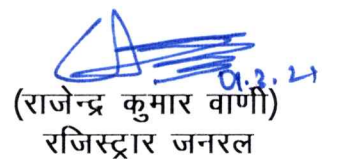 9.3.21
(राजेन्द्र कुमार वाणी)
रजिस्ट्रार जनरल